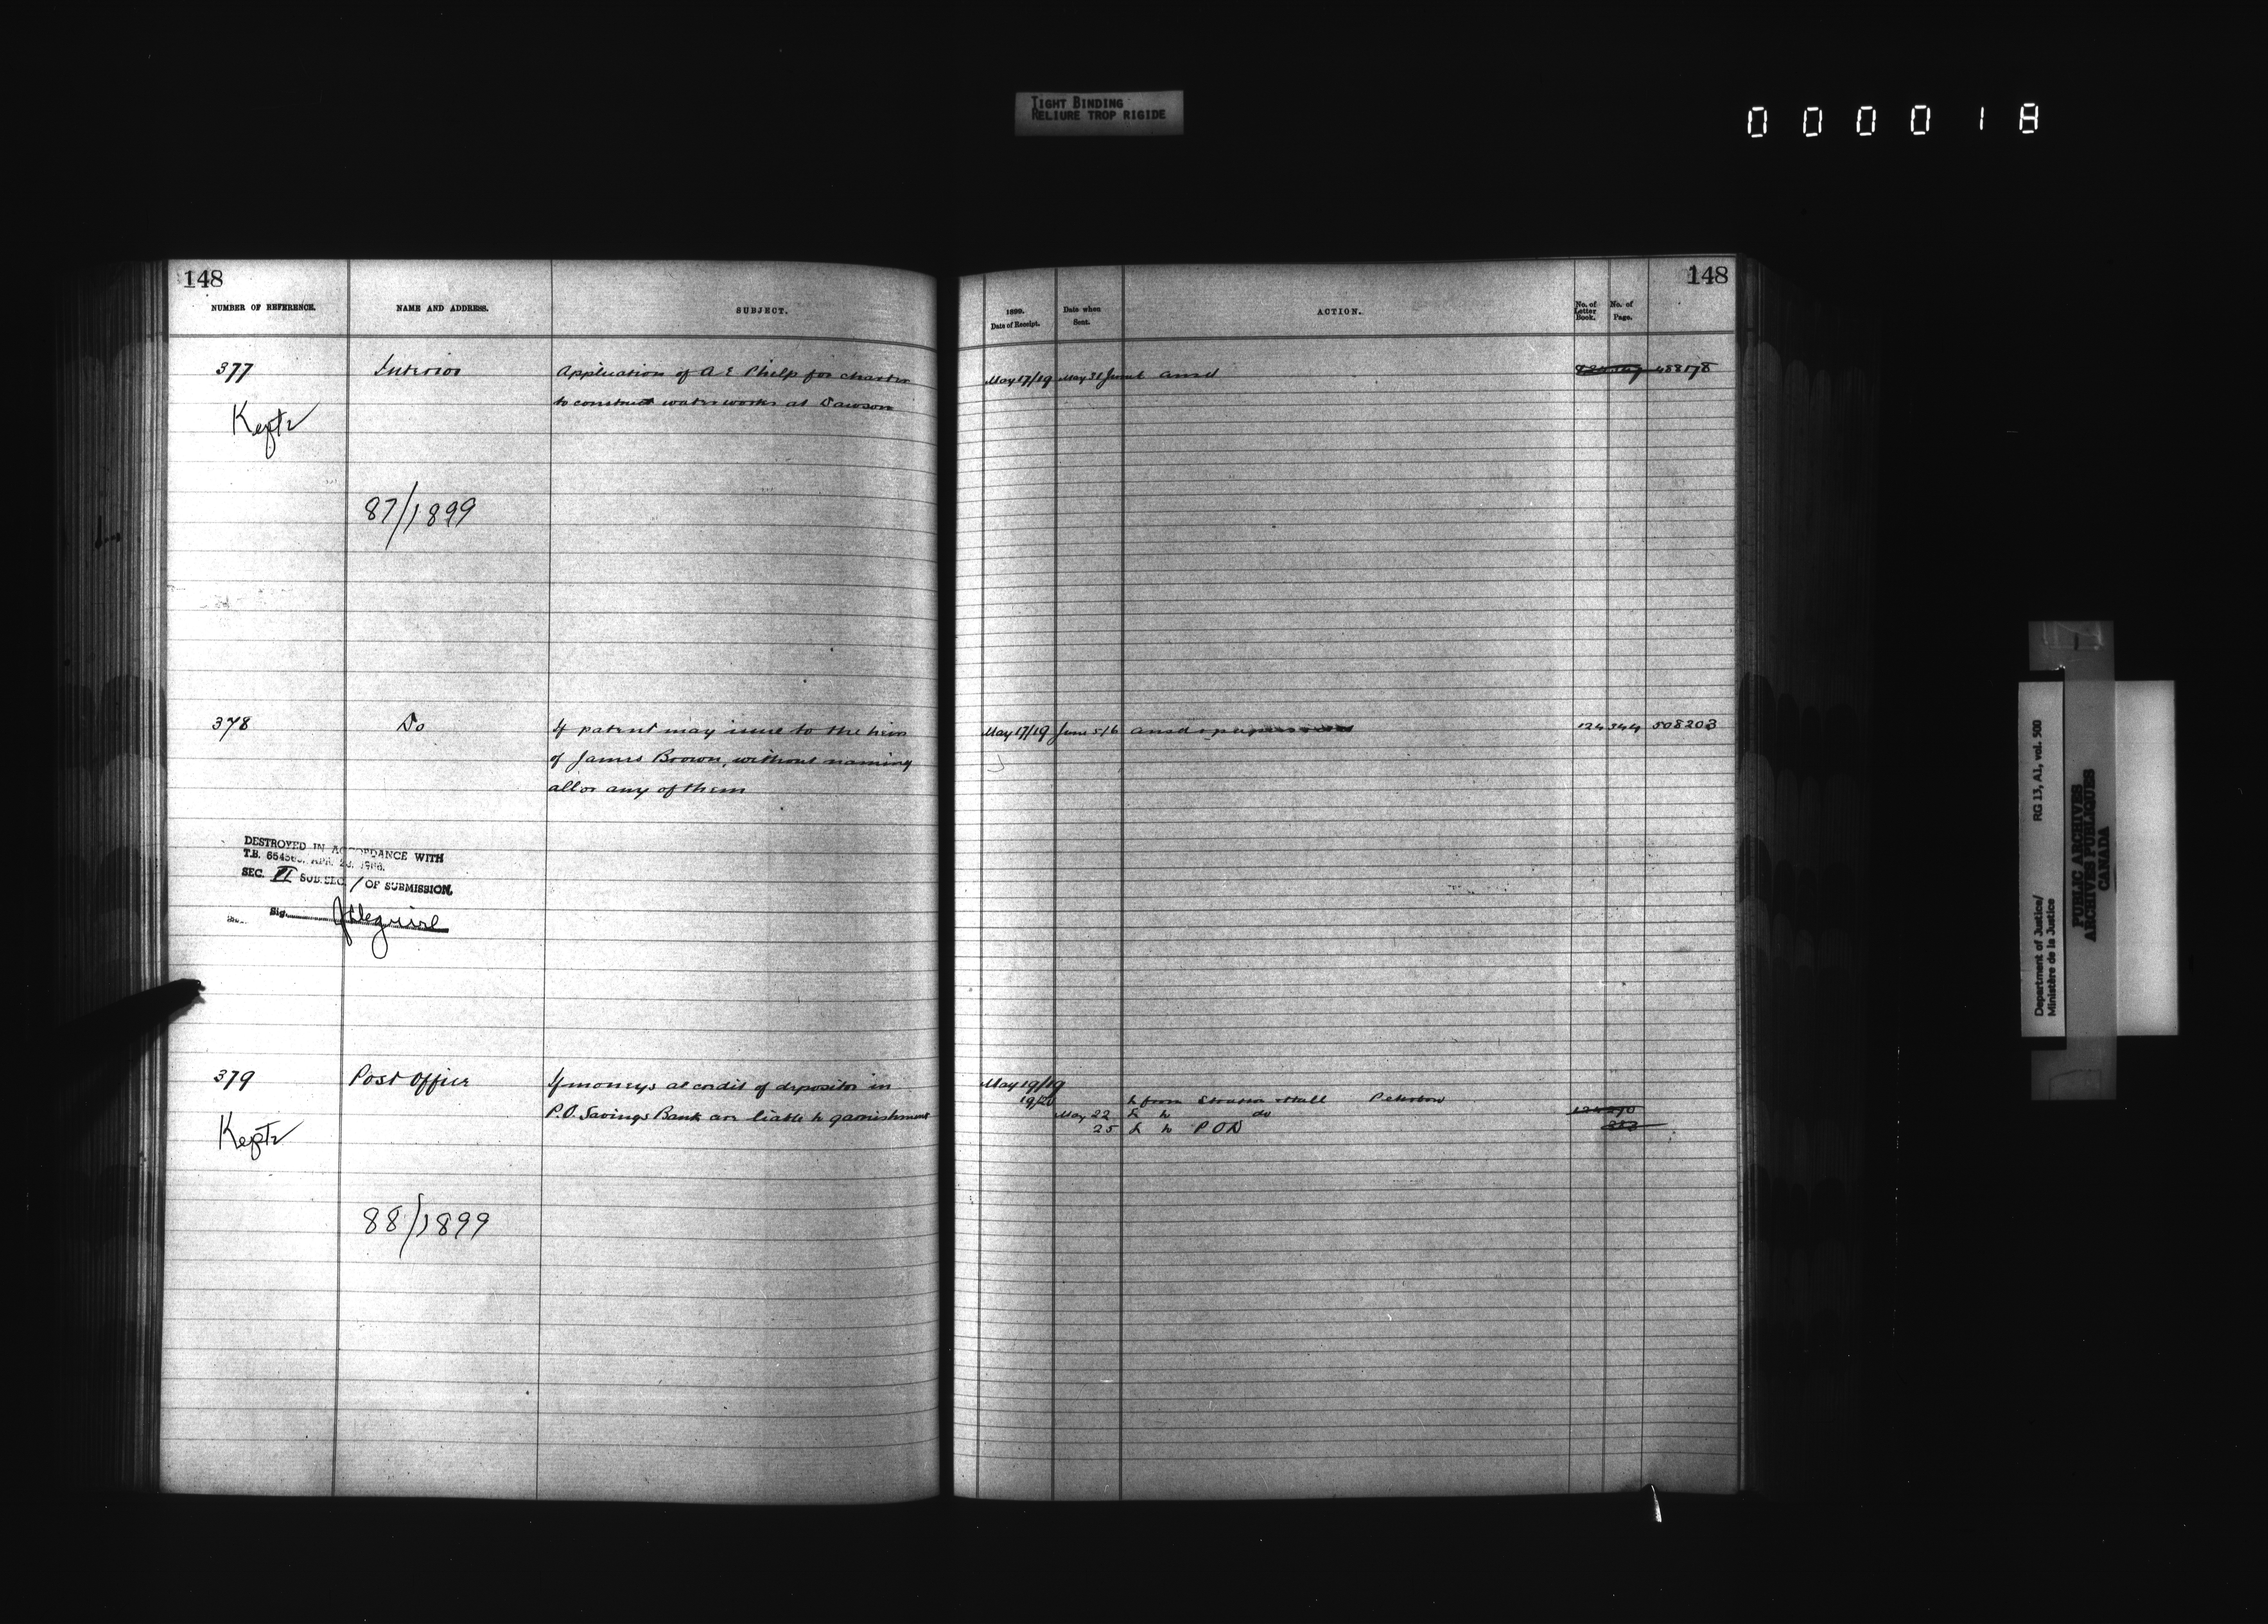 TIGHT BINDING
RELIURE TROP RIGIDE
000018
148
NUMBER OF REFERENCE.
NAME AND ADDRESS.
SUBJECT.
377
Interior
Application of A E Philp for charter
to construct waterworks at Dawson
Kept
87/1899
378
Do
If patent may issue to the heirs
of James Brown, without naming
all or any of them
DESTROYED IN ACCORDANCE WITH
T.B. APR.
SEC. VI SUB.SEC. / OF SUBMISSION.
Sig.
379
Post Office
If moneys at credit of depositor in
P.O. Savings Bank are liable to garnishment
Kept
88/1899
148
1899.
Date of Receipt.
Date when
Sent.
ACTION.
No. of
Letter
Book.
No. of
Page.
May 17/19 May 31 ansd
488178
May 17/19 June 5/6 ansd
124 344 508203
May 19/19
19/20 L from Stratton & Hall Peterboro
May 22 L to do
25 L to P O D
Department of Justice/ RG 13, A1, vol. 500
Ministère de la Justice
PUBLIC ARCHIVES
ARCHIVES PUBLIQUES
CANADA